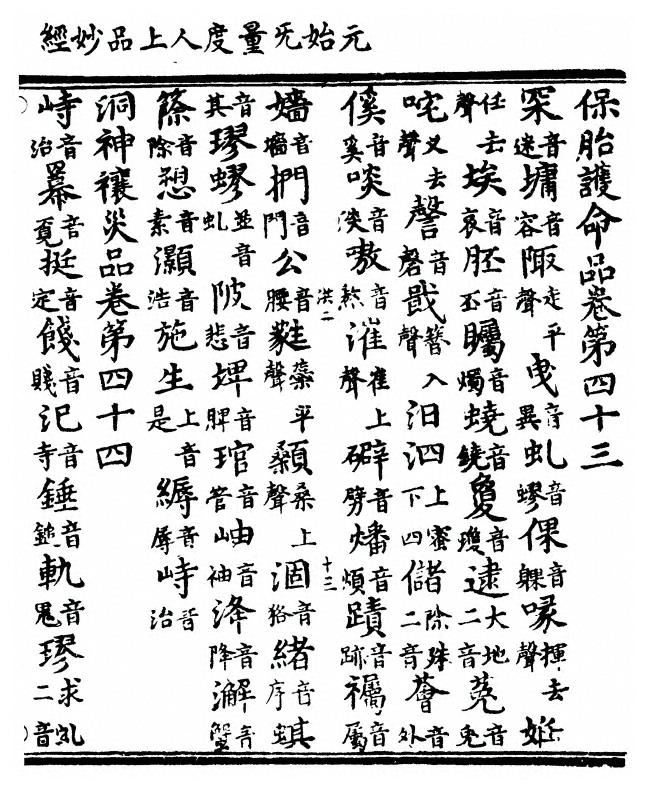 元始旡量度人上品妙經
保胎護命品卷第四十三
罙音迷墉音容陬走平聲曳音異虬音蟉倮音躶喙揮去聲妊上
任去聲埃音哀胚音丕矚音燭蟯音鐃敻音瓊逮大地二音莬音兔
咤义去聲謦音磬戢簪入聲汨泗上蜜下四儲除殊二音薈音外
傒音奚啖音淡嗷音熬漼崔上聲礔音劈燔音煩蹟音跡襡音屬
洪二 十三
嬙音墻捫音門公音腰平聲顙桑上聲涸音狢緒音序蜞音
其璆蟉並音虬陂音悲埤音脾琯音管岫音袖洚音降澥音蟹
篨音除愬音素灝音浩施生上音是縟音辱峙音治
洞神禳災品卷第四十四
峙音治幂音覓挺音定餞音賤汜音寺錘音鎚軌音晷璆求虬二音